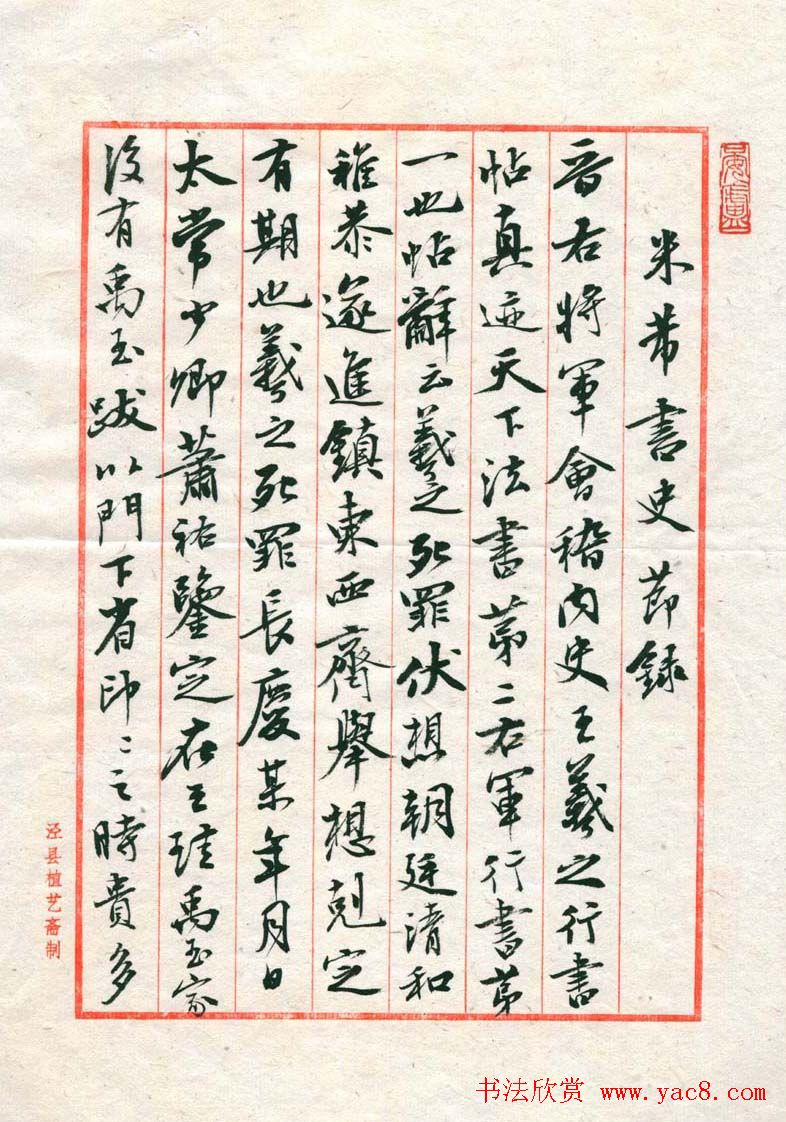 米芾書史節録
晉右将軍會稽內史王羲之行書
帖真迹天下法書第二右軍行書第
一也帖辭云羲之死罪伏想朝廷清和
稚恭遂進鎮東西齊舉想剋定
有期也羲之死罪長慶某年月日
太常少卿蕭祐鑒定在王珪禹玉家
後有禹玉跋以門下省印印之時貴多
泾县植艺斋制
书法欣赏 www.yac8.com